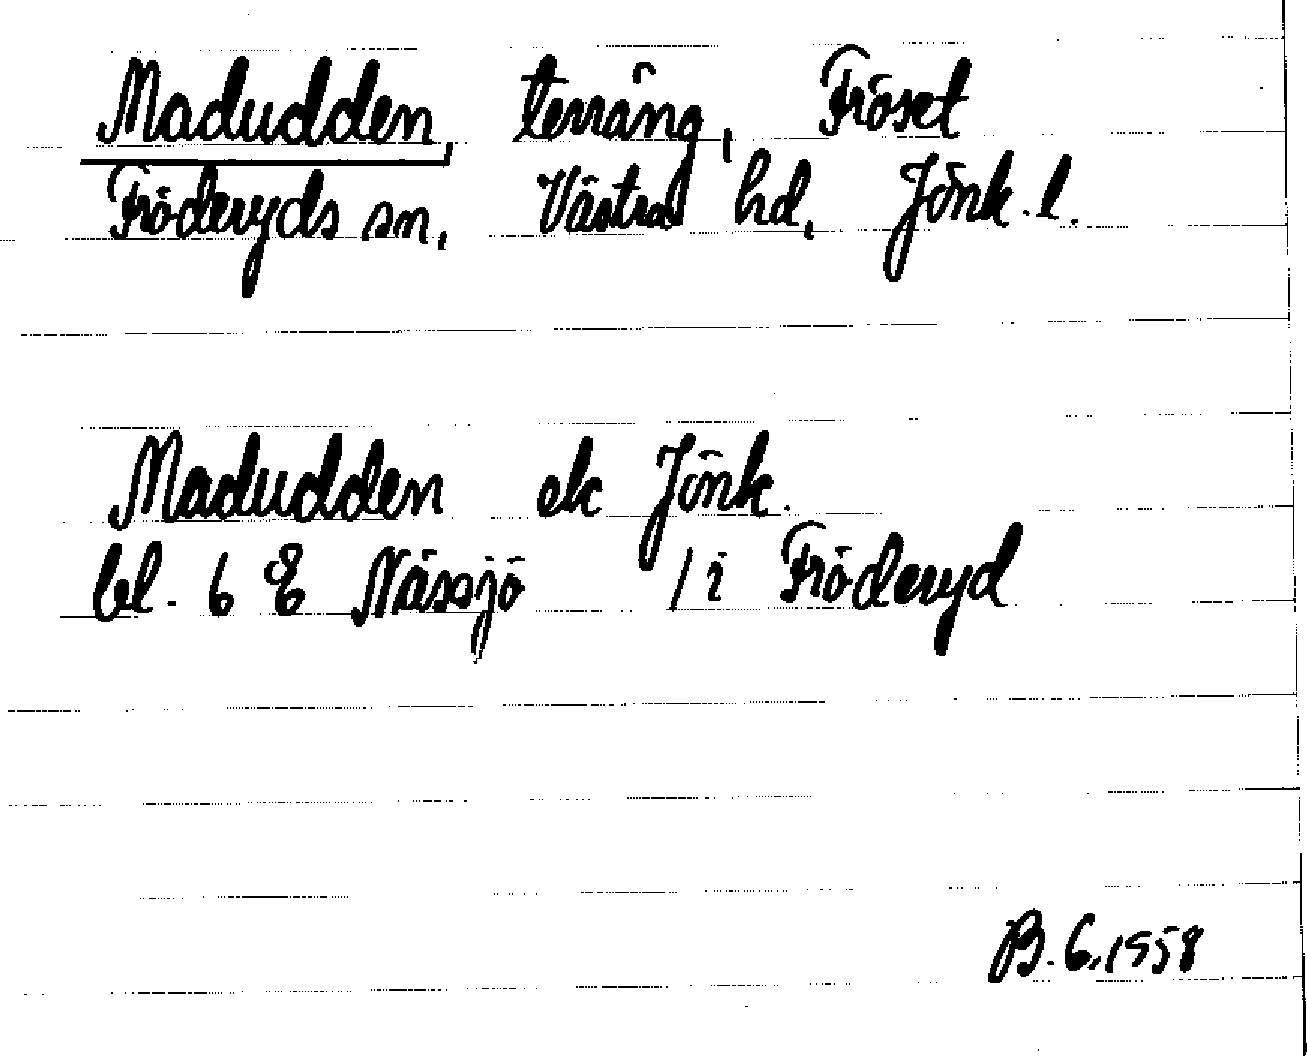 Madudden, terräng, Fröset
Fröderyds sn, Västra hd, Jönk. l.
Madudden ek Jönk.
bl. 6 E Nässjö / i Fröderyd
B. G. 1958